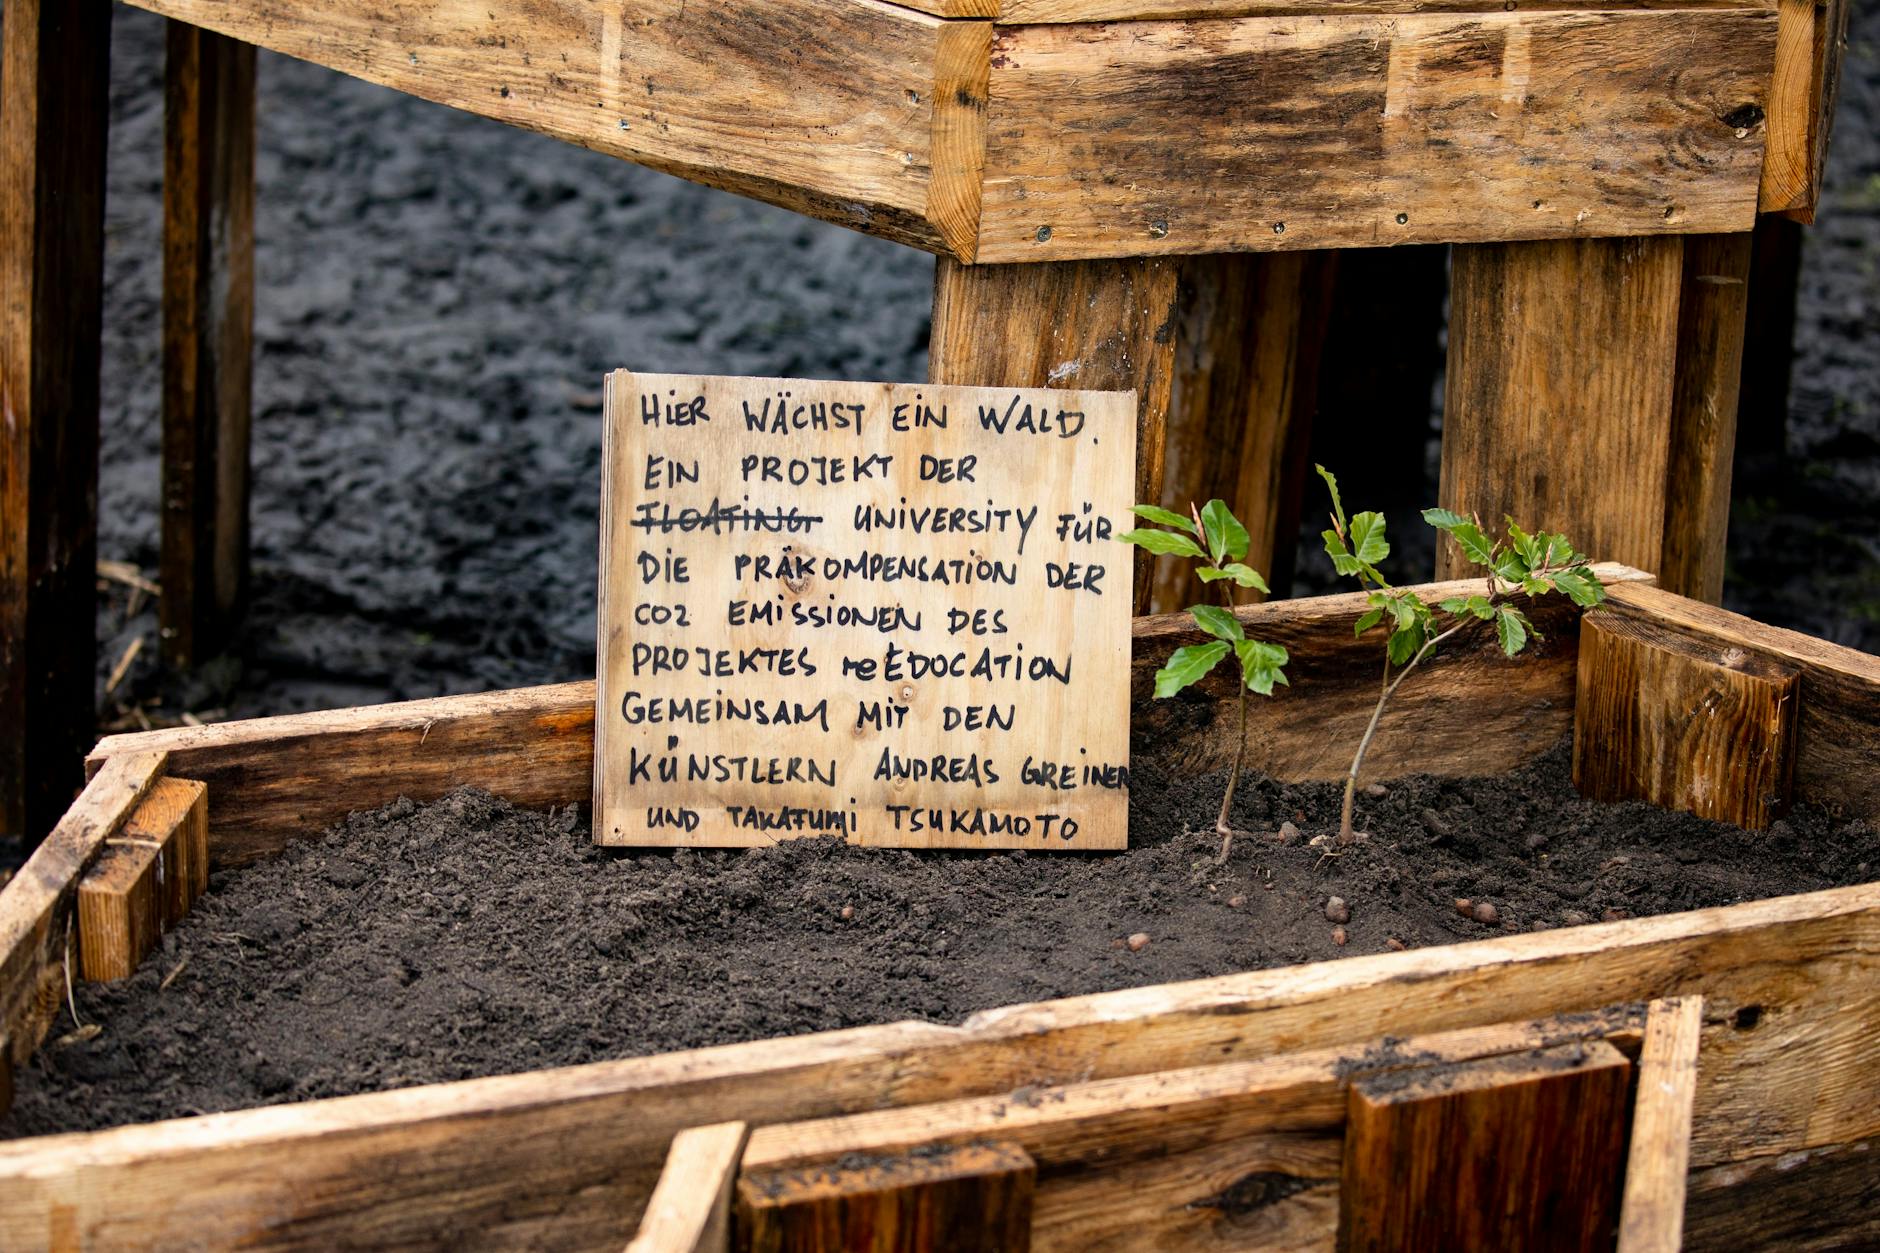 HiER WÄCHST EiN WALD.
EIN PROJEKT DER
FLOATING UNiVERSiTY FÜR
DIE PRÄKOMPENSATiON DER
CO2 EMiSSiONEN DES
PROJEKTES reEDOCATiON
GEMEiNSAM MiT DEN
KÜNSTLERN ANDREAS GREiNER
UND TAKAFUMi TSUKAMOTO